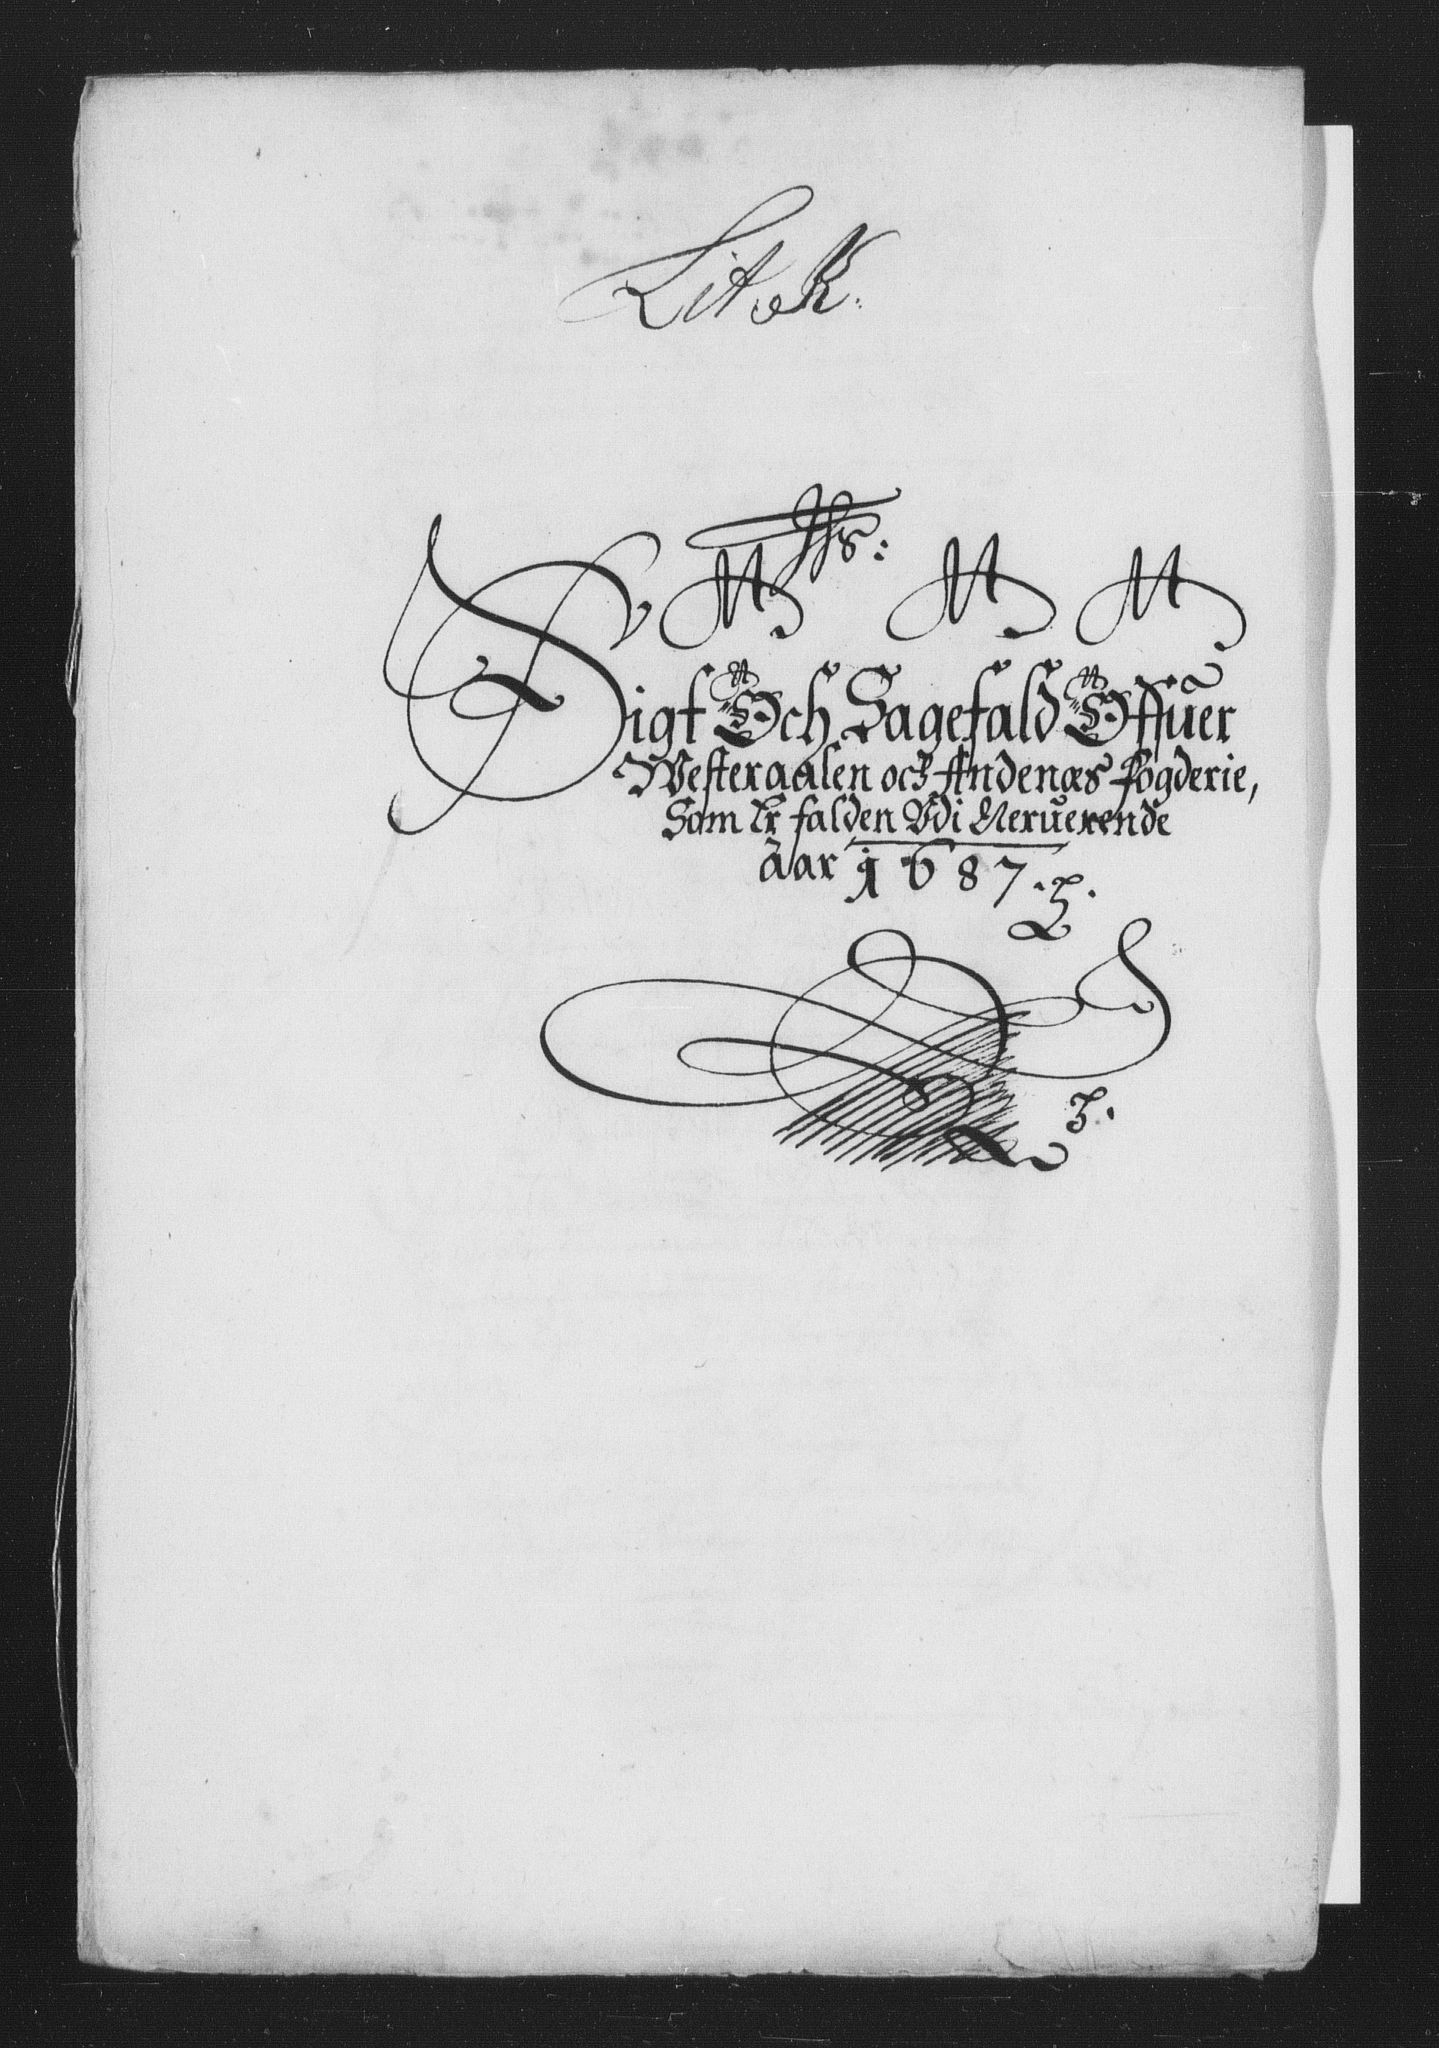 Lit. K.
Jhs:
Sigt Och Sagefald Offuer
Westeraalen och Andenæs Fogderie,
Som Er falden Udi Neruerende
Aar 1687.